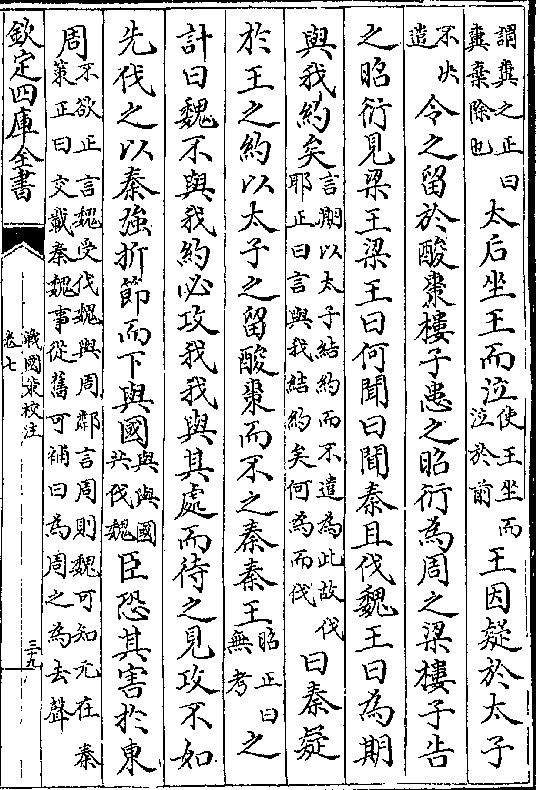 謂糞之正曰糞棄除也太后坐王而泣使王坐而泣於前王因疑於太子
不決遣令之留於酸棗樓子患之昭衍為周之梁樓子告
之昭衍見梁王梁王曰何聞曰聞秦且伐魏王曰為期
與我約矣言期以太子結約而不遣為此故伐耶正曰言與我結約矣何為而伐曰秦疑
於王之約以太子之留酸棗而不之秦秦王昭正曰無考之
計曰魏不與我約必攻我我與其處而待之見攻不如
先伐之以秦強折節而下與國與與國共伐魏臣恐其害於東
周不欲正言魏受伐魏與周鄰言周則魏可知元在秦策正曰交載秦魏事從舊可補曰為周之為去聲
欽定四庫全書
戰國策校注
卷七
三九